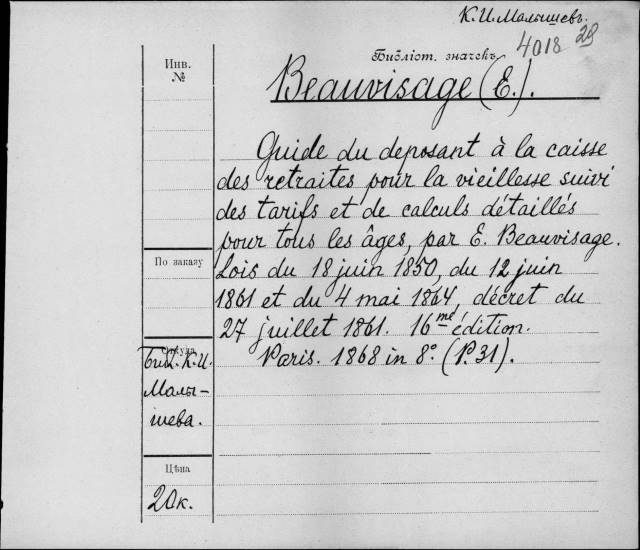 К. И. Малышевъ.
4018 29
Библіот. значекъ
Инв.
№
Beauvisage (E.).
Guide du deposant à la caisse
des retraites pour la vieillesse suivi
des tarifs et de calculs détaillés
pour tous les âges, par E. Beauvisage.
Lois du 18 juin 1850, du 12 juin
1861 et du 4 mai 1864, décret du
27 juillet 1861. 16mé édition.
Paris. 1868 in 8º. (P. 31).
По заказу
Откуда
Библ. К. И.
Малы-
шева.
Цѣна
20 к.